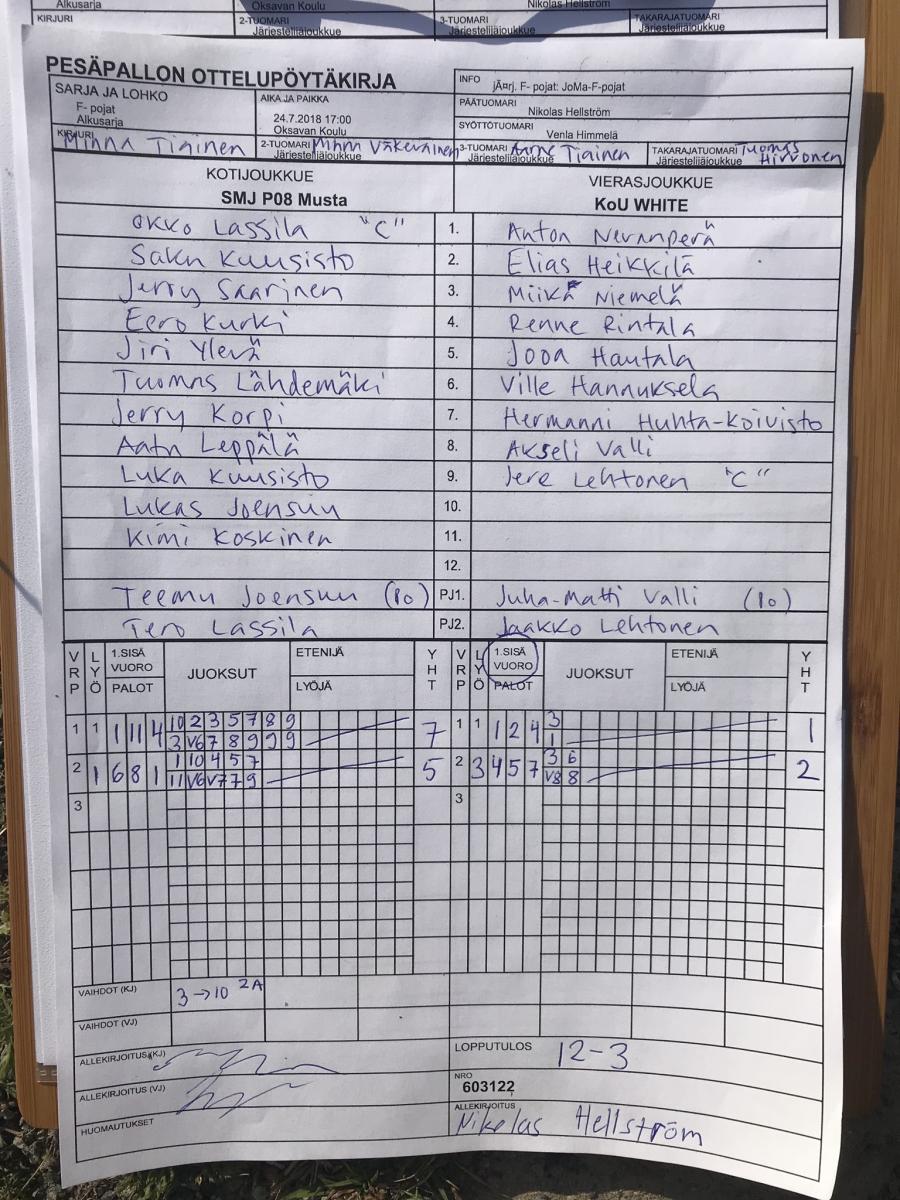 Alkusarja
Oksavan Koulu
Nikolas Hellström
KIRJURI
2-TUOMARI
Järjestelijäjoukkue
3-TUOMARI
Järjestelijäjoukkue
TAKARAJATUOMARI
Järjestelijäjoukkue
PESÄPALLON OTTELUPÖYTÄKIRJA
INFO jÃ¤rj. F- pojat: JoMa-F-pojat
SARJA JA LOHKO
F- pojat
Alkusarja
AIKA JA PAIKKA
24.7.2018 17:00
Oksavan Koulu
PÄÄTUOMARI
Nikolas Hellström
SYÖTTÖTUOMARI
Venla Himmelä
KIRJURI
Minna Tiainen
2-TUOMARI Minna Väkeväinen
Järjestelijäjoukkue
3-TUOMARI Aarne Tiainen
Järjestelijäjoukkue
TAKARAJATUOMARI Tuomas Hirvonen
Järjestelijäjoukkue
KOTIJOUKKUE VIERASJOUKKUE
SMJ P08 Musta KoU WHITE
Okko Lassila "C" 1. Anton Neranperä
Saku Kuusisto 2. Elias Heikkilä
Jerry Saarinen 3. Miika Niemelä
Eero Kurki 4. Renne Rintala
Jiri Ylevä 5. Jooa Hautala
Tuomas Lähdemäki 6. Ville Hannuksela
Jerry Korpi 7. Hermanni Huhta-Koivisto
Aatu Leppälä 8. Akseli Valli
Luka Kuusisto 9. Jere Lehtonen "C"
Lukas Joensuu 10.
Kimi Koskinen 11.
12.
Teemu Joensuu (10) PJ1. Juha-Matti Valli (10)
Tero Lassila PJ2. Jaakko Lehtonen
VRP LYÖ 1.SISÄ VUORO PALOT JUOKSUT ETENIJÄ LYÖJÄ YHT VRP LYÖ 1.SISÄ VUORO PALOT JUOKSUT ETENIJÄ LYÖJÄ YHT
1 1 1 11 4 10 2 3 5 7 8 9 7 1 1 1 2 4 3 1
3 V6 7 8 9 9 9 1
2 1 6 8 1 1 10 4 5 7 5 2 3 4 5 7 3 6 2
11 V6 V7 7 9 V8 8
3 3
VAIHDOT (KJ) 3→10 2A
VAIHDOT (VJ)
ALLEKIRJOITUS(KJ)
LOPPUTULOS 12-3
ALLEKIRJOITUS (VJ)
NRO
603122
HUOMAUTUKSET
ALLEKIRJOITUS
Nikolas Hellström